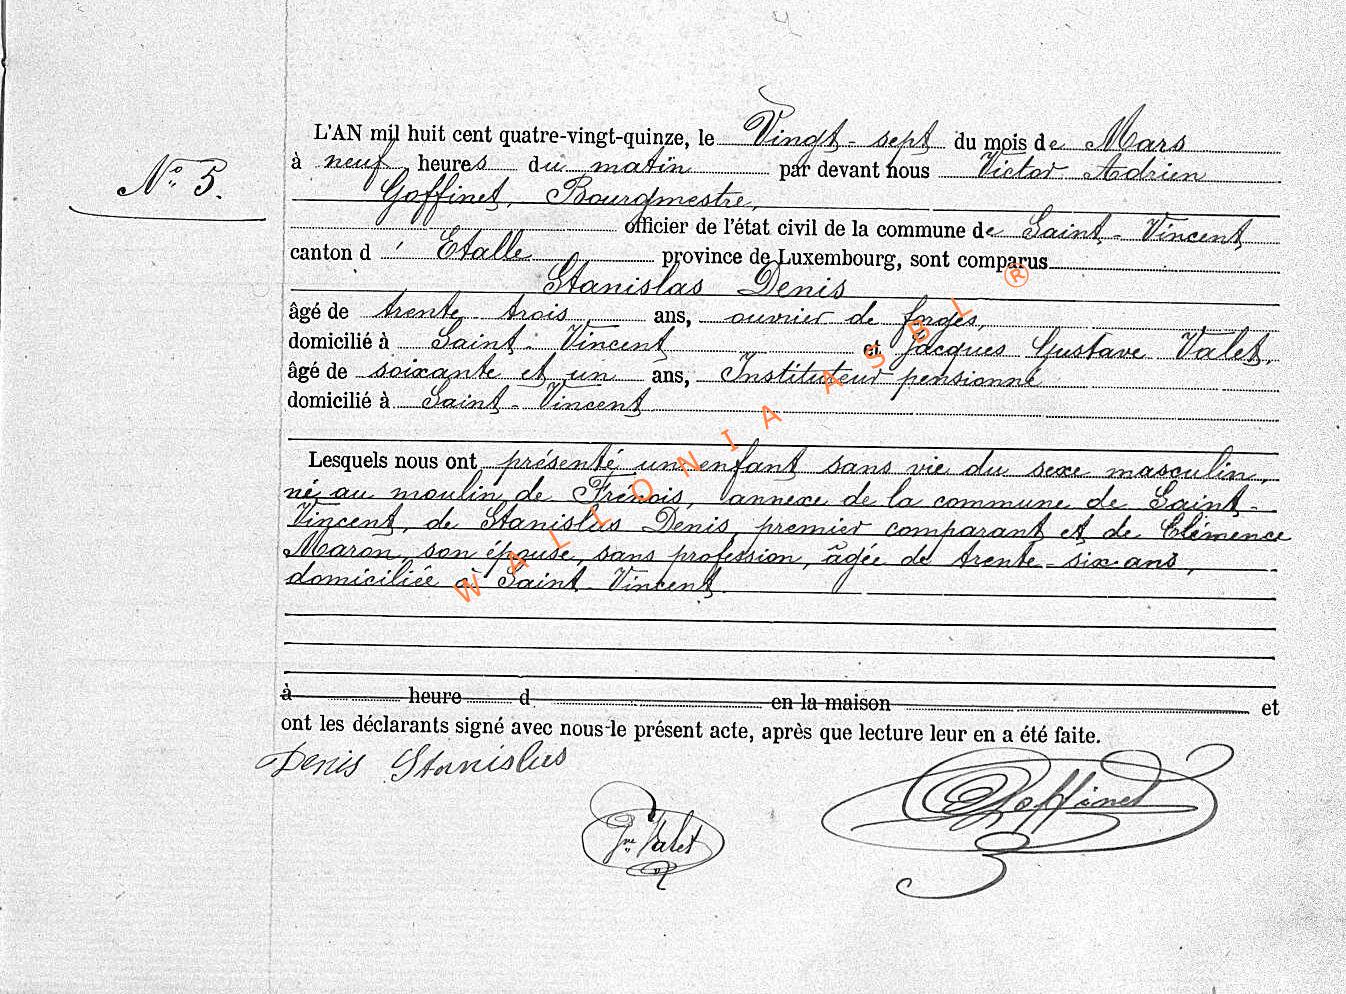 L'AN mil huit cent quatre-vingt-quinze, le Vingt-sept du mois de Mars
No. 5.
à neuf heures du matin par devant nous Victor Adrien
Goffinet, Bourgmestre,
officier de l'état civil de la commune de Saint-Vincent
canton d'Etalle province de Luxembourg, sont comparus
Stanislas Denis
âgé de trente-trois ans, ouvrier de forges,
domicilié à Saint-Vincent et Jacques Gustave Valet,
âgé de soixante et un ans, Instituteur pensionné
domicilié à Saint-Vincent
Lesquels nous ont présenté un enfant sans vie du sexe masculin,
né au moulin de Frénois, annexe de la commune de Saint-
Vincent, de Stanislas Denis, premier comparant et de Clémence
Maron, son épouse, sans profession, âgée de trente-six ans,
domiciliée à Saint-Vincent.
à heure d en la maison et
ont les déclarants signé avec nous le présent acte, après que lecture leur en a été faite.
Denis Stanislas
Valet
Goffinet
WALLONIA ASBL ®